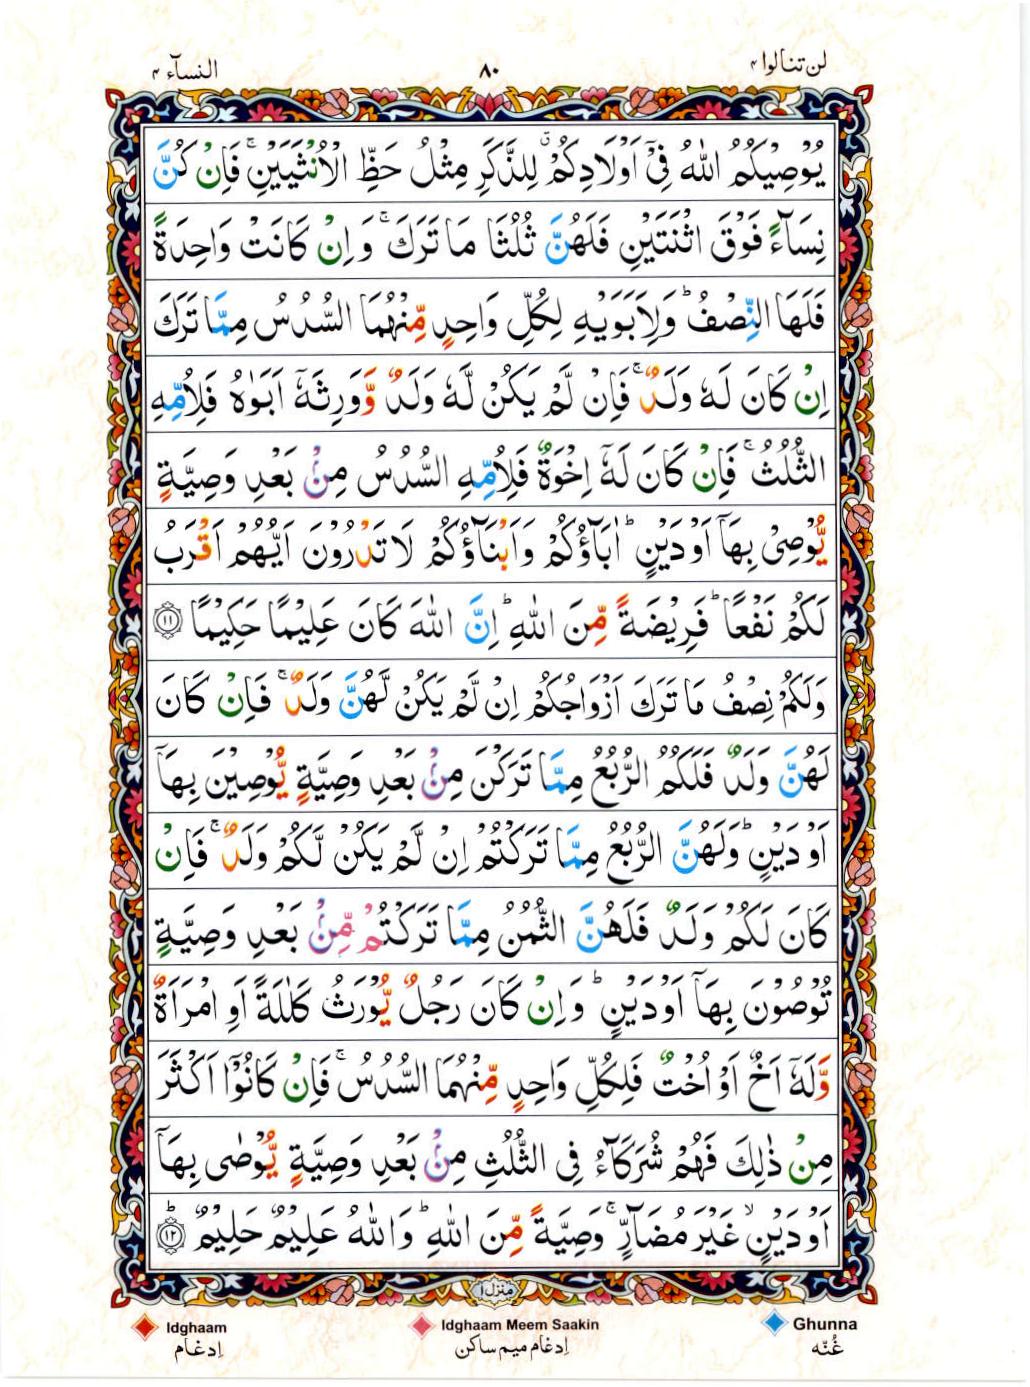 لن تنالوا ۴ ۸۰ النسآء ۴
يُوْصِيْكُمُ اللّٰهُ فِيْۤ اَوْلَادِكُمْ ۗ لِلذَّكَرِ مِثْلُ حَظِّ الْاُنْثَيَيْنِ ۚ فَاِنْ كُنَّ
نِسَآءً فَوْقَ اثْنَتَيْنِ فَلَهُنَّ ثُلُثَا مَا تَرَكَ ۚ وَاِنْ كَانَتْ وَاحِدَةً
فَلَهَا النِّصْفُ ؕ وَلِاَبَوَيْهِ لِكُلِّ وَاحِدٍ مِّنْهُمَا السُّدُسُ مِمَّا تَرَكَ
اِنْ كَانَ لَهٗ وَلَدٌ ۚ فَاِنْ لَّمْ يَكُنْ لَّهٗ وَلَدٌ وَّوَرِثَهٗۤ اَبَوٰهُ فَلِاُمِّهِ
الثُّلُثُ ۚ فَاِنْ كَانَ لَهٗۤ اِخْوَةٌ فَلِاُمِّهِ السُّدُسُ مِنْۢ بَعْدِ وَصِيَّةٍ
يُّوْصِيْ بِهَاۤ اَوْ دَيْنٍ ؕ اٰبَآؤُكُمْ وَاَبْنَآؤُكُمْ لَا تَدْرُوْنَ اَيُّهُمْ اَقْرَبُ
لَكُمْ نَفْعًا ؕ فَرِيْضَةً مِّنَ اللّٰهِ ؕ اِنَّ اللّٰهَ كَانَ عَلِيْمًا حَكِيْمًا ۝۱۱
وَلَكُمْ نِصْفُ مَا تَرَكَ اَزْوَاجُكُمْ اِنْ لَّمْ يَكُنْ لَّهُنَّ وَلَدٌ ۚ فَاِنْ كَانَ
لَهُنَّ وَلَدٌ فَلَكُمُ الرُّبُعُ مِمَّا تَرَكْنَ مِنْۢ بَعْدِ وَصِيَّةٍ يُّوْصِيْنَ بِهَاۤ
اَوْ دَيْنٍ ؕ وَلَهُنَّ الرُّبُعُ مِمَّا تَرَكْتُمْ اِنْ لَّمْ يَكُنْ لَّكُمْ وَلَدٌ ۚ فَاِنْ
كَانَ لَكُمْ وَلَدٌ فَلَهُنَّ الثُّمُنُ مِمَّا تَرَكْتُمْ مِّنْۢ بَعْدِ وَصِيَّةٍ
تُوْصُوْنَ بِهَاۤ اَوْ دَيْنٍ ؕ وَاِنْ كَانَ رَجُلٌ يُّوْرَثُ كَلٰلَةً اَوِ امْرَاَةٌ
وَّلَهٗۤ اَخٌ اَوْ اُخْتٌ فَلِكُلِّ وَاحِدٍ مِّنْهُمَا السُّدُسُ ۚ فَاِنْ كَانُوْۤا اَكْثَرَ
مِنْ ذٰلِكَ فَهُمْ شُرَكَآءُ فِي الثُّلُثِ مِنْۢ بَعْدِ وَصِيَّةٍ يُّوْصٰى بِهَاۤ
اَوْ دَيْنٍ ۙ غَيْرَ مُضَآرٍّ ۚ وَصِيَّةً مِّنَ اللّٰهِ ؕ وَاللّٰهُ عَلِيْمٌ حَلِيْمٌ ؕ ۝۱۲
منزل ۱
Idghaam Idghaam Meem Saakin Ghunna
اِدغام اِدغام میم ساکن غُنّه